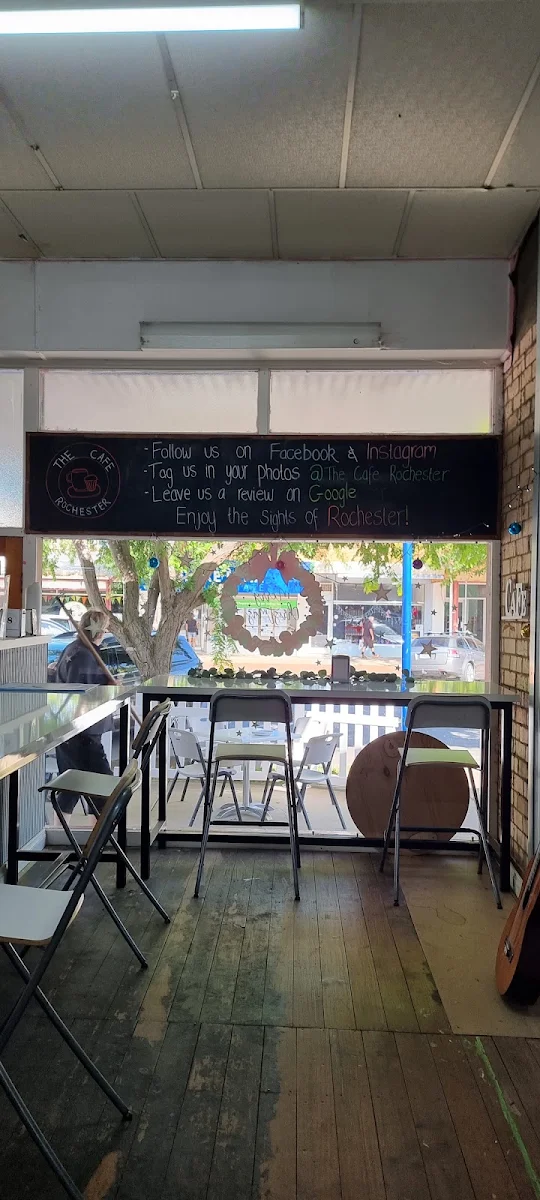 THE CAFE
ROCHESTER
-Follow us on Facebook & Instagram
-Tag us in your photos @The Cafe Rochester
-Leave us a review on Google
Enjoy the sights of Rochester!
CAFE